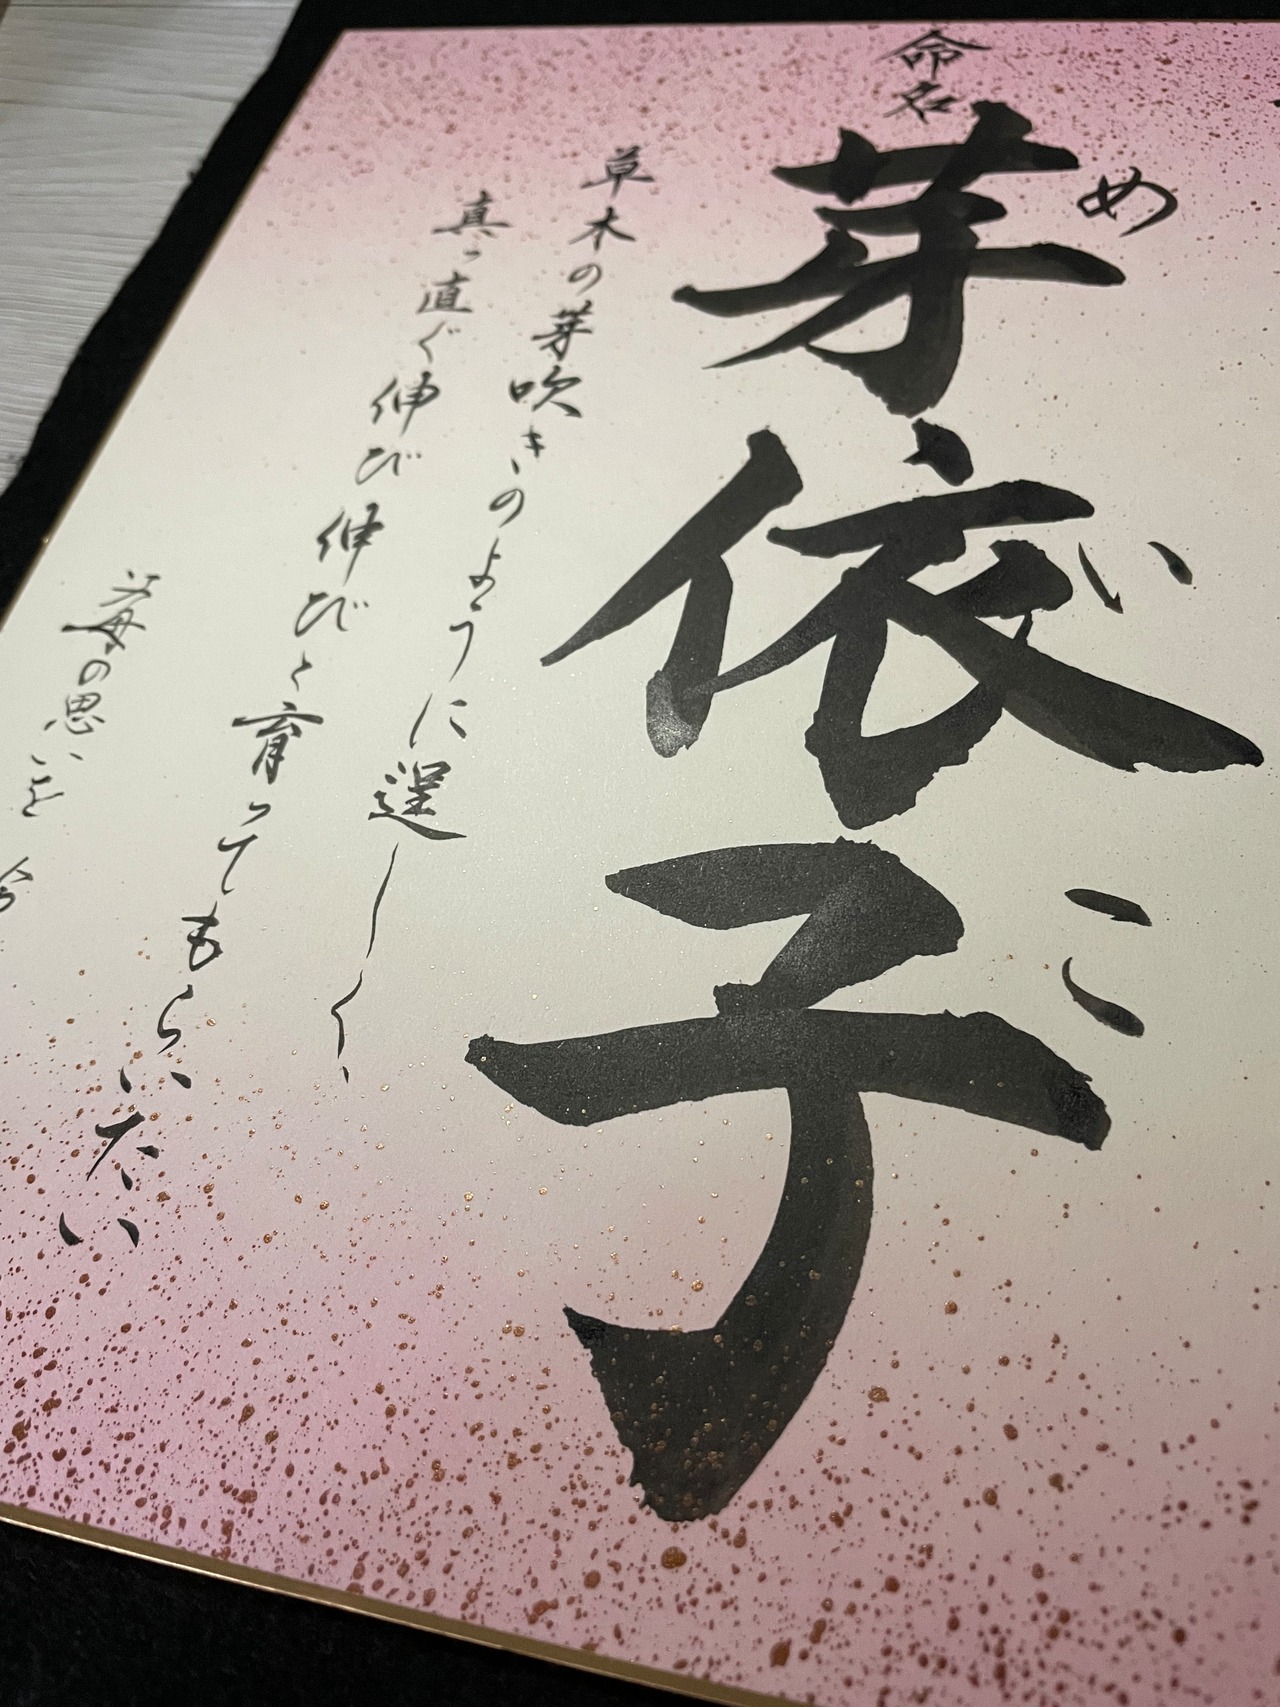 命名
芽依子
めいこ
草木の芽吹きのように逞しく、
真っ直ぐ伸び伸びと育ってもらいたい
の思いを